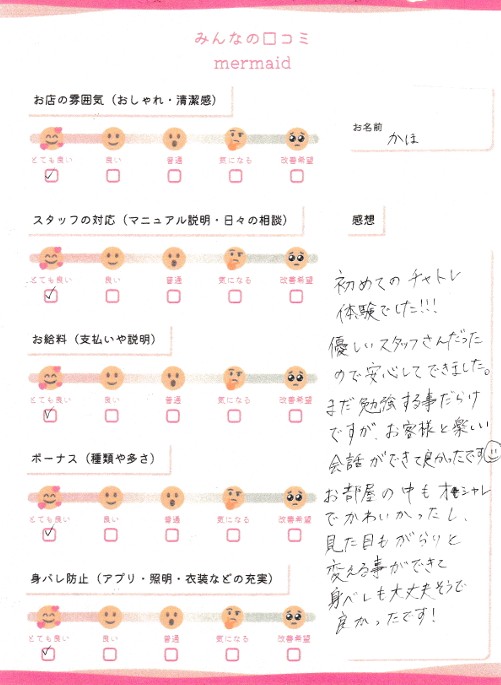 みんなの口コミ
mermaid
お店の雰囲気（おしゃれ・清潔感）
とても良い 良い 普通 気になる 改善希望
スタッフの対応（マニュアル説明・日々の相談）
とても良い 良い 普通 気になる 改善希望
お給料（支払いや説明）
とても良い 良い 普通 気になる 改善希望
ボーナス（種類や多さ）
とても良い 良い 普通 気になる 改善希望
身バレ防止（アプリ・照明・衣装などの充実）
とても良い 良い 普通 気になる 改善希望
お名前
かほ
感想
初めてのチャトレ
体験でした!!!
優しいスタッフさんだった
ので安心してできました。
まだ勉強する事だらけ
ですが、お客様と楽しい
会話ができて良かったです
お部屋の中もオシャレ
でかわいかったし、
見た目もがらりと
変える事ができて
身バレも大丈夫そうで
良かったです!